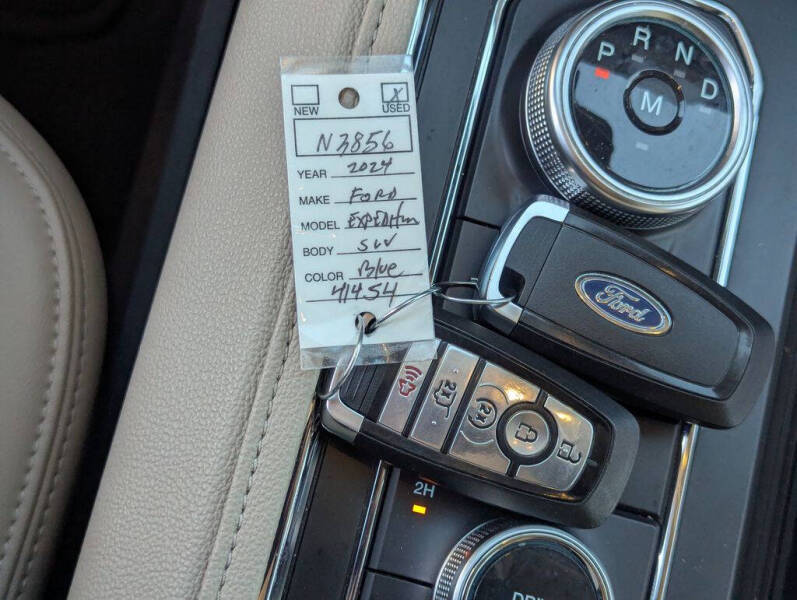 NEW USED
X
N3856
YEAR 2024
MAKE FORD
MODEL EXPEDITION
BODY SUV
COLOR Blue
41454
P R N D
M
Ford
2X
2X
2H